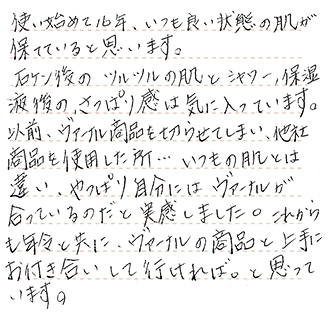 使い始めて16年、いつも良い状態の肌が
保てていると思います。
石ケン後のツルツルの肌とシャワー,保湿
液後のさっぱり感は気に入っています。
以前、ヴァーナル商品を切らせてしまい、他社
商品を使用した所…いつもの肌とは
違い、やっぱり自分にはヴァーナルが
合っているのだと実感しました。これから
も年令と共に、ヴァーナルの商品と上手に
お付き合いして行ければ。と思って
います。